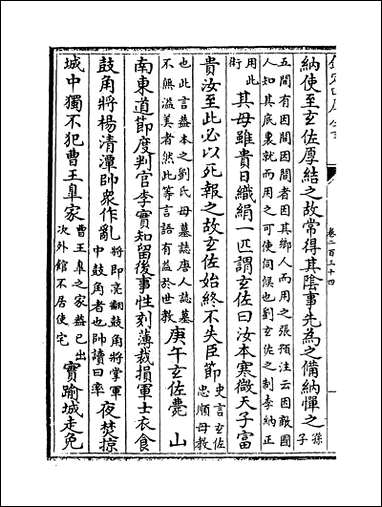 卷二百三十四
納使至玄佐厚結之故常得其陰事先為之備納憚之孫子
五間有因間因間者因其鄉人而用之張預注云因敵國
人知其底裏就而用之可使伺候也劉玄佐之制李納正
用此術其母雖貴日織絹一匹謂玄佐曰汝本寒微天子富
貴汝至此必以死報之故玄佐始終不失臣節史言玄佐忠順母教
也此言蓋本之劉氏母墓誌唐人誌墓
不無溢美者然此等言語有益於世教庚午玄佐薨 山
南東道節度判官李實知留後事性刻薄裁損軍士衣食
鼓角將楊清潭帥衆作亂將即亮翻鼓角將掌軍中鼓角者也帥讀曰率夜焚掠
城中獨不犯曹王臯家曹王臯之家蓋已出次外館不居使宅實踰城走免